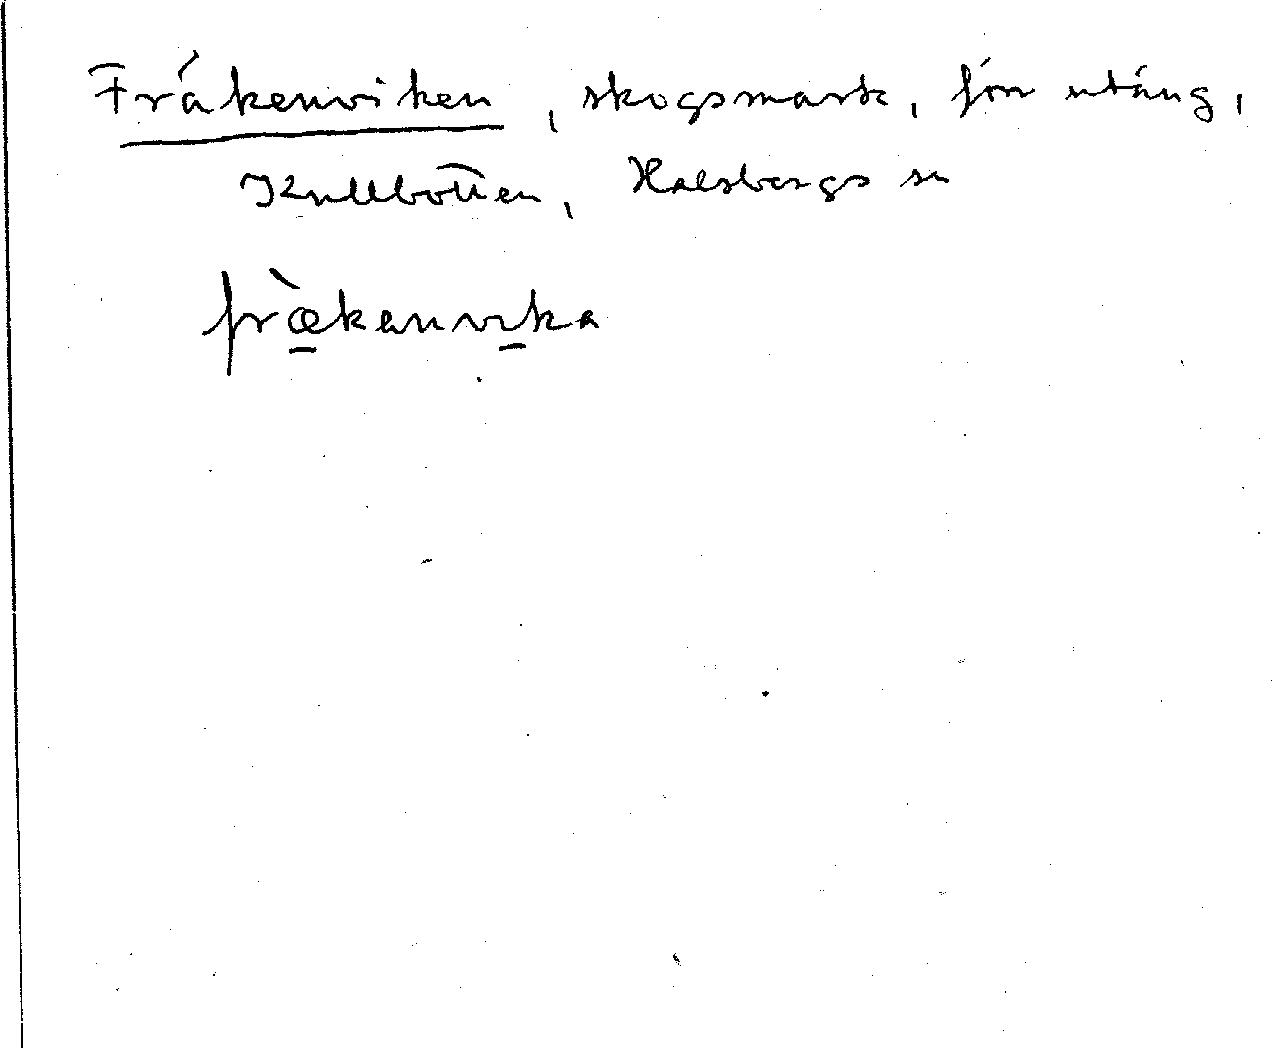 Fräkenviken, skogsmark, förr utäng,
Kullbotten, Halsbergs sn
fræ̀kanvika